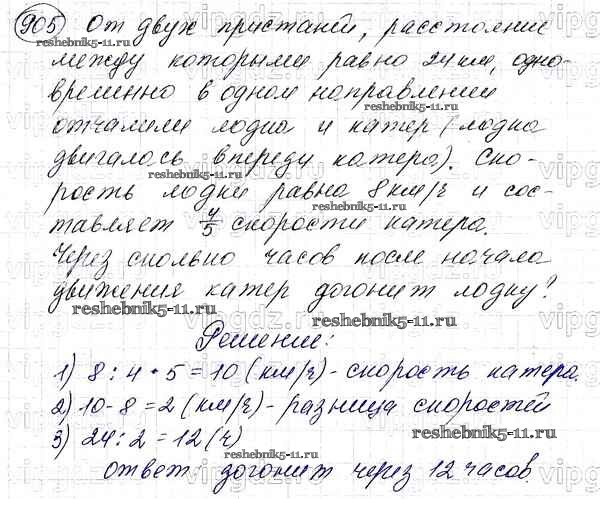 905 От двух пристаней, расстояние
между которыми равно 24 км, одно-
временно в одном направлении
отчалили лодка и катер (лодка
двигалась впереди катера). Ско-
рость лодки равна 8 км/ч и сос-
тавляет 4/5 скорости катера.
Через сколько часов после начала
движения катер догонит лодку?
Решение:
1) 8 : 4 • 5 = 10 (км/ч) - скорость катера.
2) 10 - 8 = 2 (км/ч) - разница скоростей
3) 24 : 2 = 12 (ч)
ответ догонит через 12 часов.
reshebnik5-11.ru
reshebnik5-11.ru
reshebnik5-11.ru
reshebnik5-11.ru
reshebnik5-11.ru
reshebnik5-11.ru
vipgdz.ru